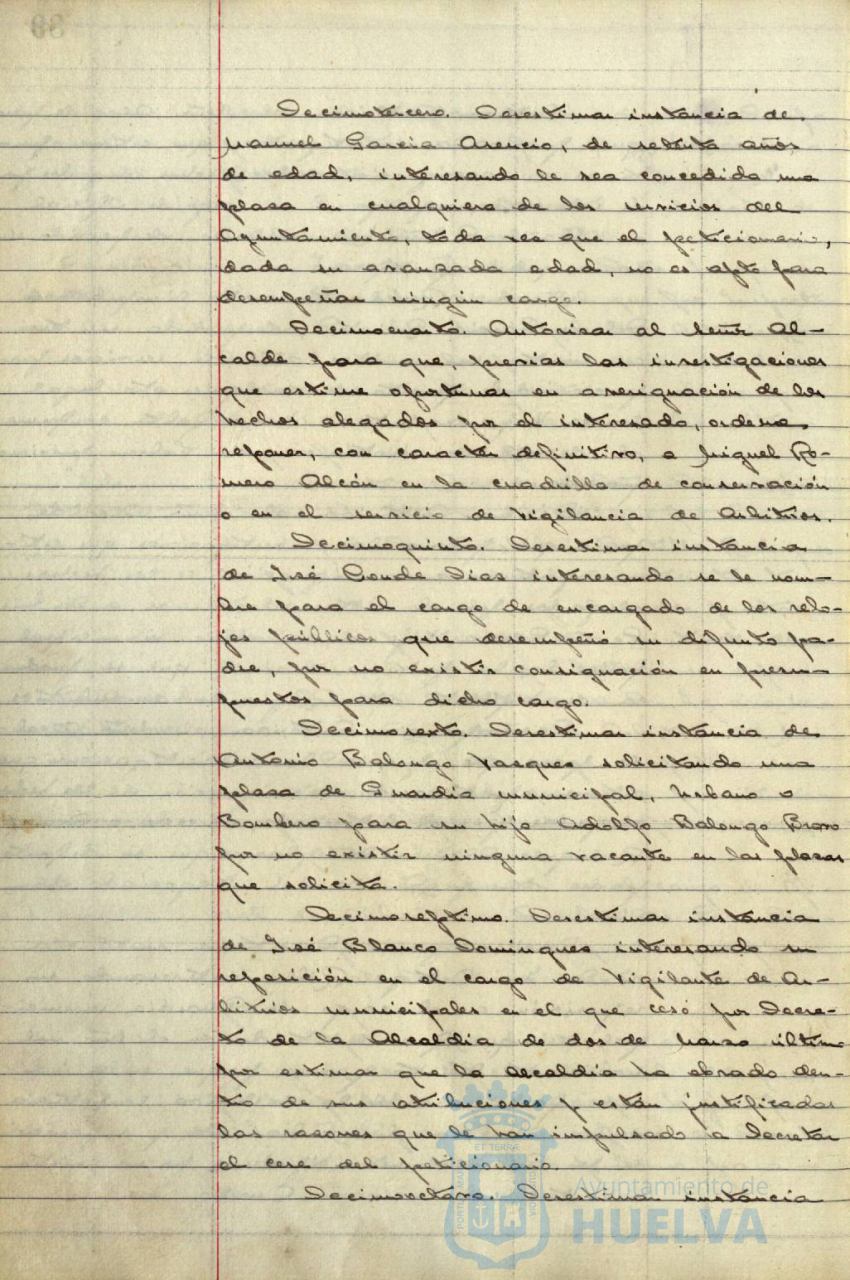 Decimotercero. Desestimar instancia de
Manuel Garcia Asencio, de setenta años
de edad, interesando le sea concedida una
plasa en cualquiera de los servicios del
Ayuntamiento, toda ves que el peticionario,
dada su avanzada edad, no es apto para
desempeñar ningún cargo.
Decimocuarto. Autorisar al Señor Al-
calde para que, previas las investigaciones
que estime oportunas en averiguación de los
hechos alegados por el interesado, ordene
reponer, con caracter definitivo, a Miguel Ro-
mero Alcón en la cuadrilla de conservación
o en el servicio de Vigilancia de Arbitrios.
Decimoquinto. Desestimar instancia
de José Conde Dias interesando se le nom-
bre para el cargo de encargado de los relo-
jes públicos que desempeñó su difunto pa-
dre, por no existir consignación en presu-
puestos para dicho cargo.
Decimosexto. Desestimar instancia de
Antonio Balongo Vasques solicitando una
plasa de Guardia municipal, Urbano o
Bombero para su hijo Adolfo Balongo Bravo
por no existir ninguna vacante en las plasas
que solicita.
Decimoseptimo. Desestimar instancia
de José Blanco Domingues interesando su
reposición en el cargo de Vigilante de Ar-
bitrios municipales en el que cesó por Decre-
to de la Alcaldia de dos de Marzo último
por estimar que la Alcaldia ha obrado den-
tro de sus atribuciones y están justificadas
las rasones que le han impulsado a Decretar
el cese del peticionario.
Decimoctavo. Desestimar instancia
Ayuntamiento de
HUELVA